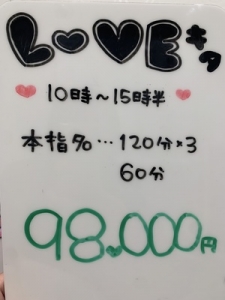 LOVEキタ
10時～15時半
本指名…120分×3
60分
98.000円